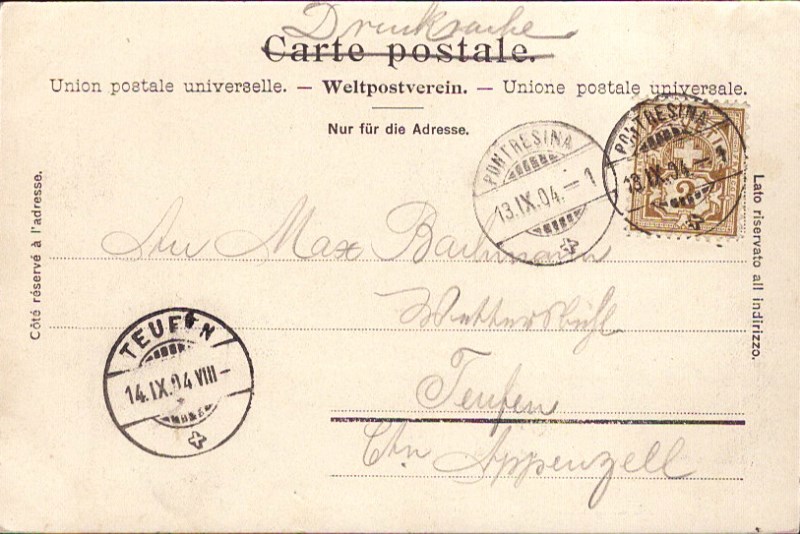 Drucksache
Carte postale.
Union postale universelle. — Weltpostverein. — Unione postale universale.
Nur für die Adresse.
PONTRESINA
13.IX.04.–1
PONTRESINA
13.IX.04.–1
2
Côté réservé à l'adresse.
Lato riservato all indirizzo.
An Max Bachmann
Wettersbühl
Teufen
Ctn Appenzell
TEUFEN
14.IX.04 VIII–